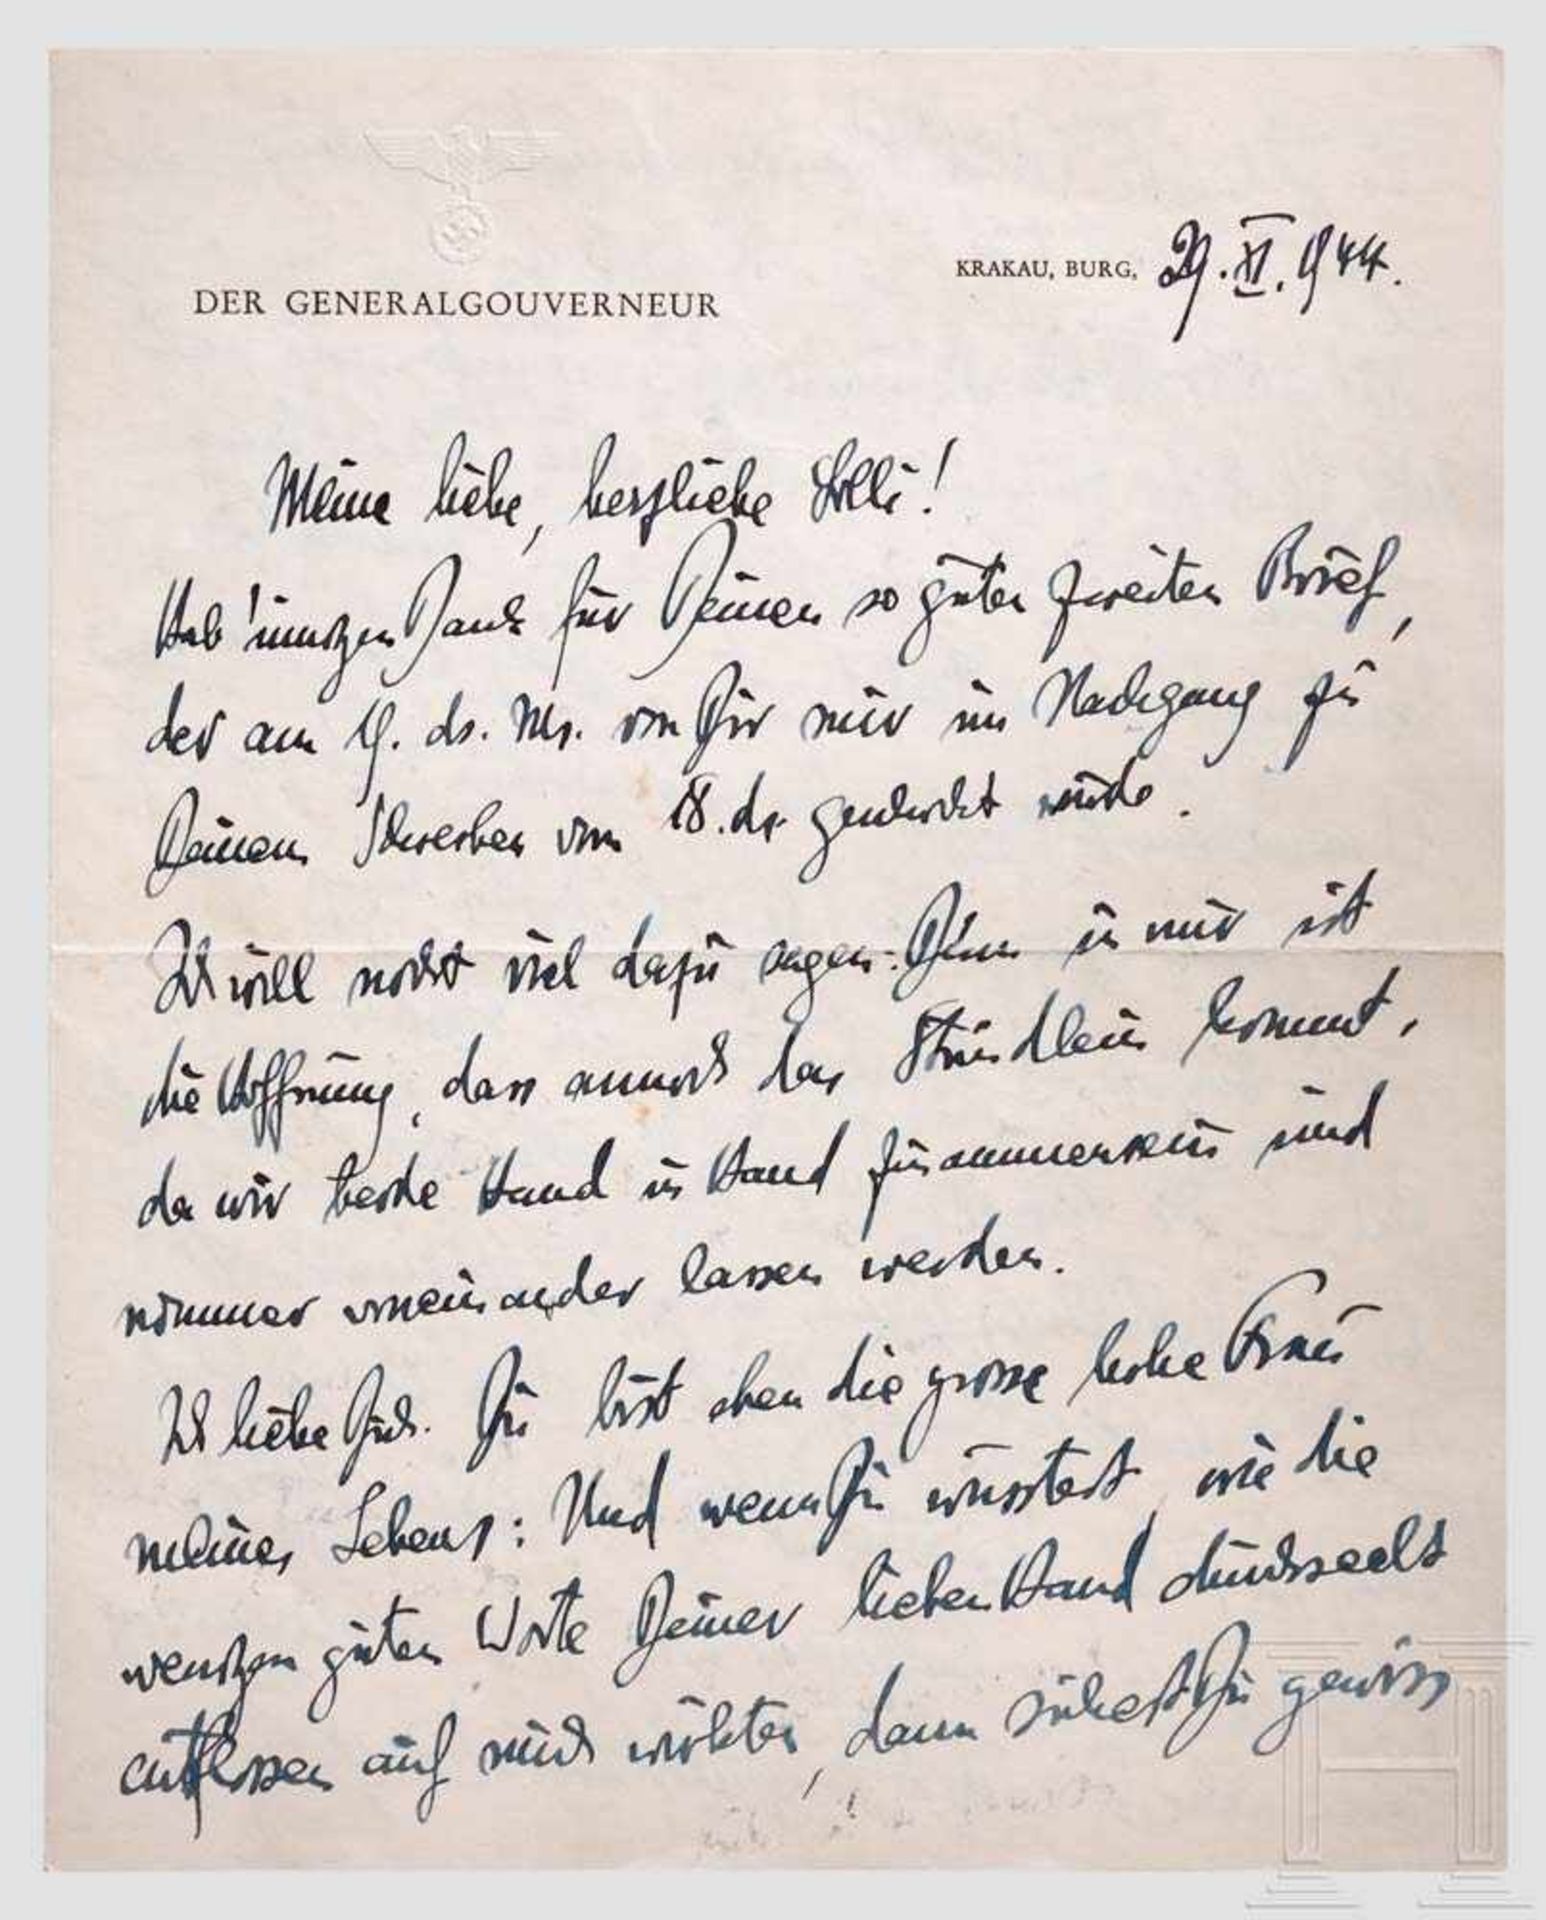 DER GENERALGOUVERNEUR
KRAKAU, BURG, 29. XI. 1944.
Meine liebe, herzliebe Lilli!
Hab' innigen Dank für Deinen so guten zweiten Brief,
der am 19. ds. Ms. von Dir mir im Nachgang zu
Deinem Schreiben vom 18. ds. geschickt wurde.
Ich will nicht viel dazu sagen: Denn in mir ist
die Hoffnung, dass annoch das Stündlein kommt,
da wir beide Hand in Hand zusammensein und
nimmer voneinander lassen werden.
Ich liebe Dich. Du bist eben die grosse hohe Frau
meines Lebens: Und wenn Du wüsstest, wie die
wenigen guten Worte Deiner lieben Hand durchseelt
entflossen auf mich wirkten, dann Du gewiss